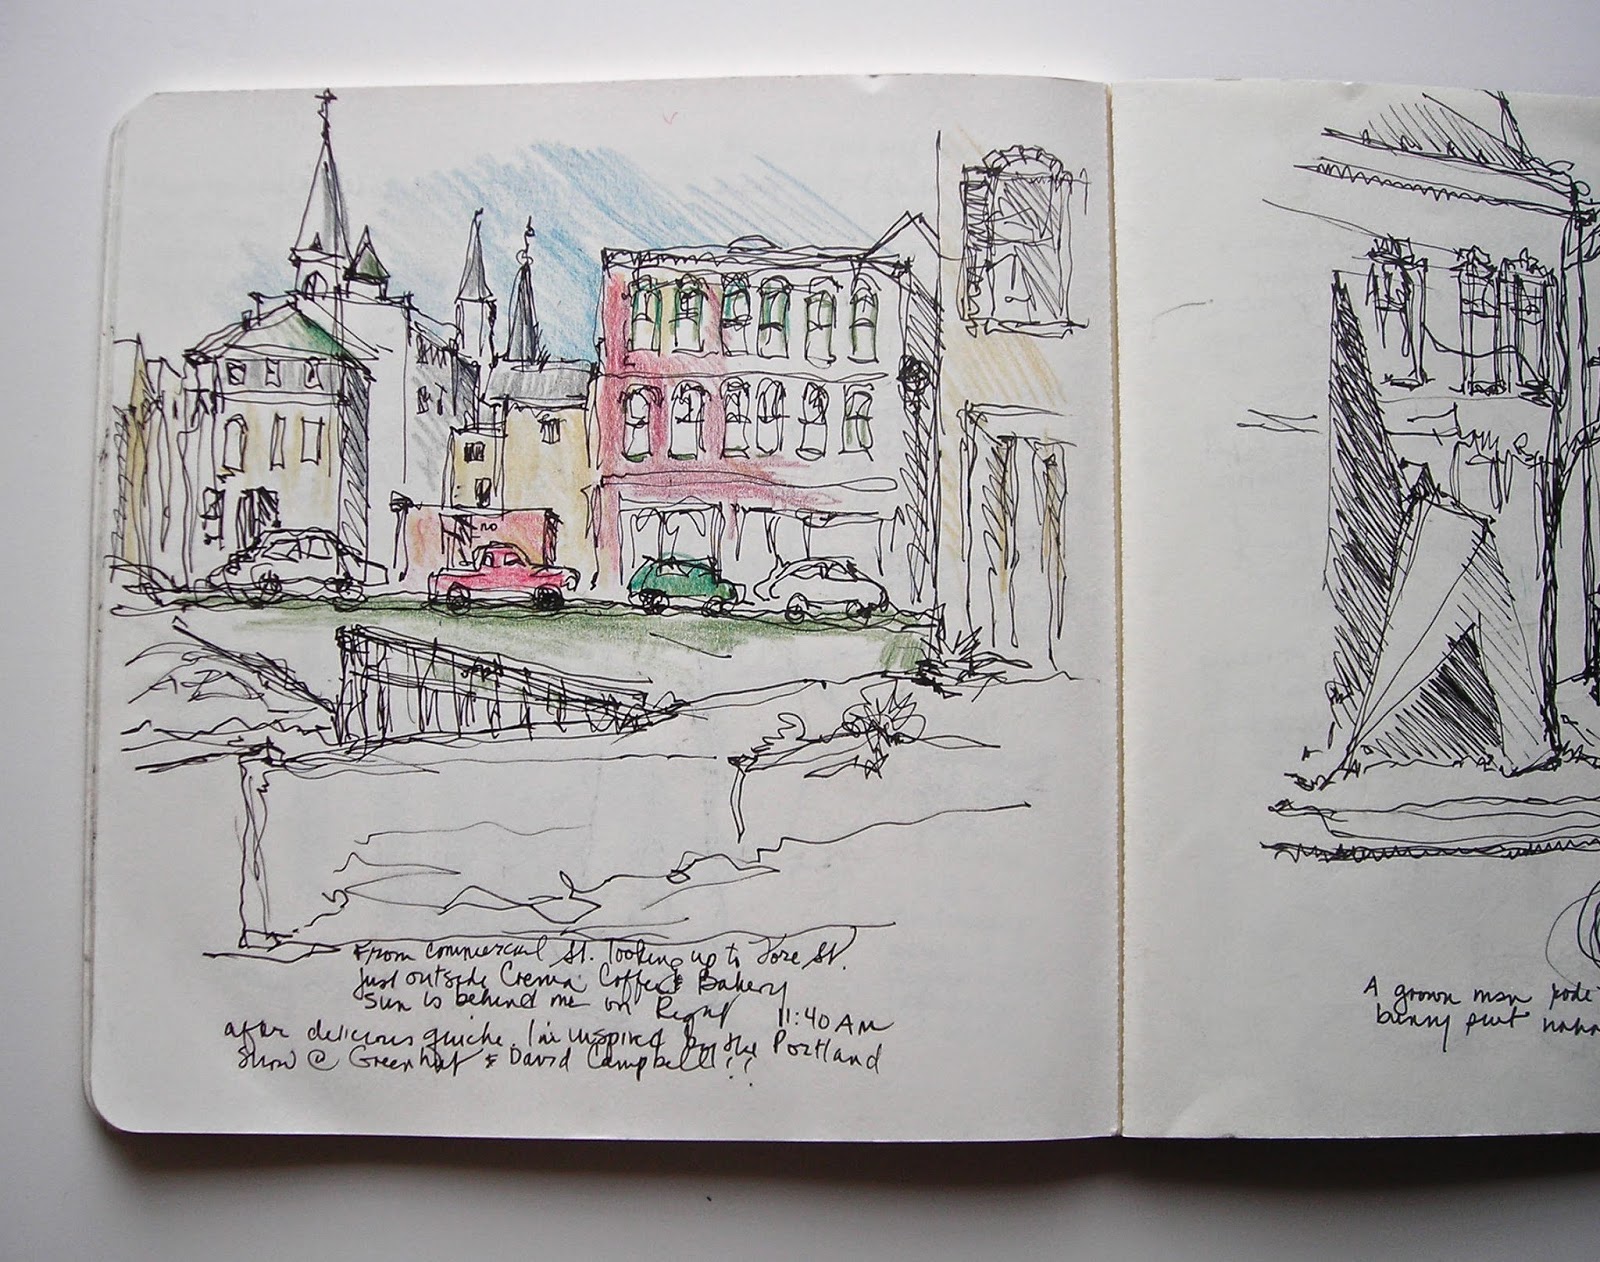 From Commercial St. looking up to Fore St.
Just outside Crema Coffee & Bakery
Sun is behind me on Right 11:40 AM
after delicious quiche. I'm inspired by the Portland
Show @ Greenhut & David Campbell!!
A grown man
bunny